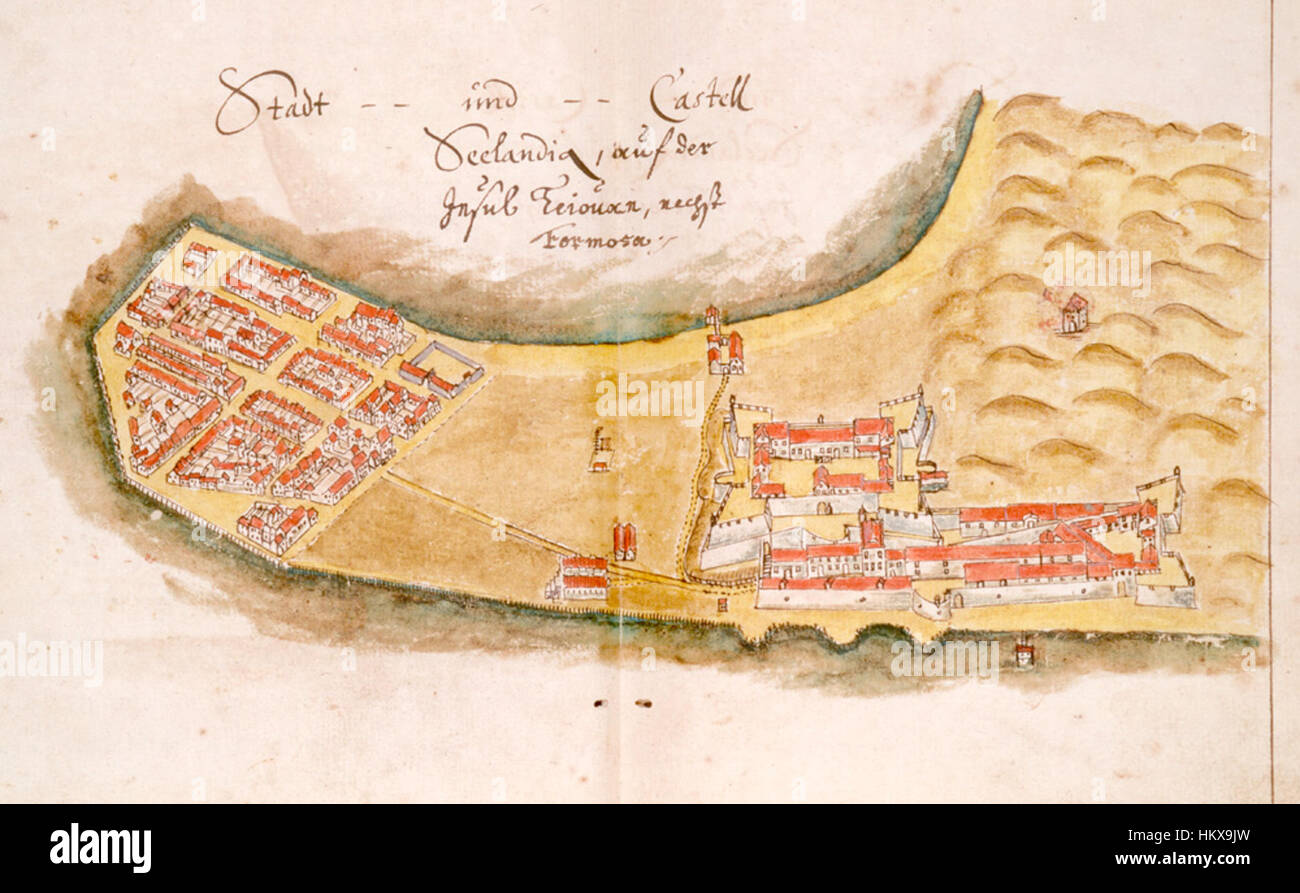 Stadt -- und -- Castell
Seelandia, auf der
Insul Teiouan, nechst
Formosa.
alamy
alamy
Image ID: HKX9JW
www.alamy.com